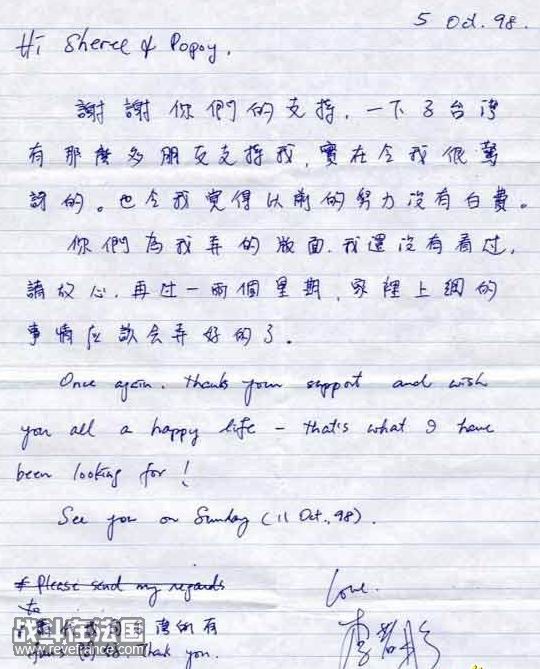 5 Oct. 98.
Hi Sheree & Popoy,
謝謝你們的支持，一下子台灣
有那麼多朋友支持我，實在令我很驚
訝的。也令我覺得以前的努力沒有白費。
你們為我弄的版面，我還沒有看过，
請放心，再过一兩個星期，家裡上網的
事情应該会弄好的了。
Once again, thanks your support and wish
you all a happy life - that's what I have
been looking for!
See you on Sunday (11 Oct., 98).
* Please send my regards
to
Love,
李若彤
thank you.
战斗在法国
www.revefrance.com